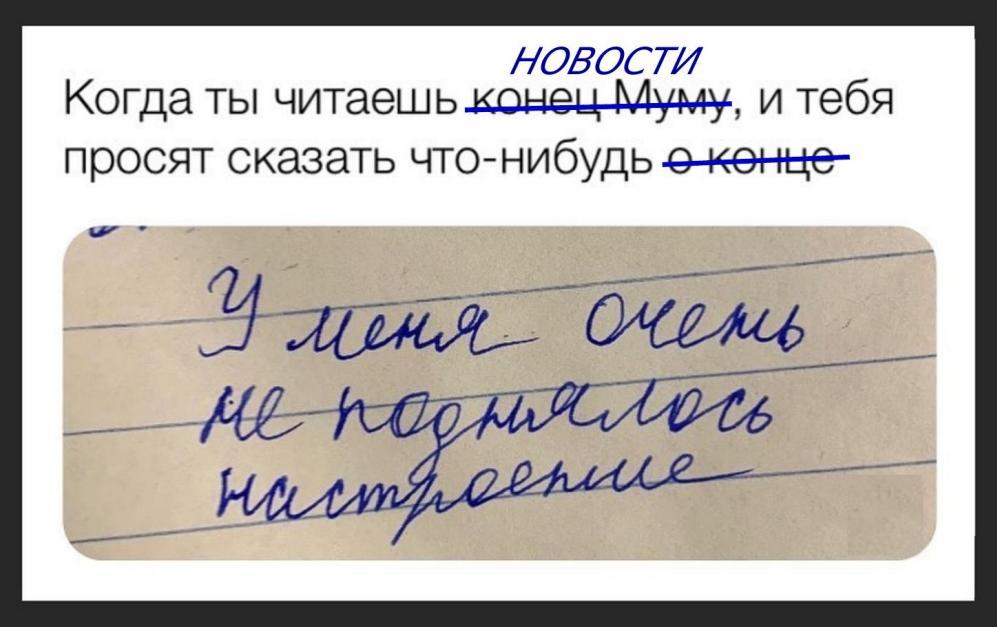 НОВОСТИ
Когда ты читаешь конец Муму, и тебя
просят сказать что-нибудь о конце
У меня очень
не поднялось
настроение